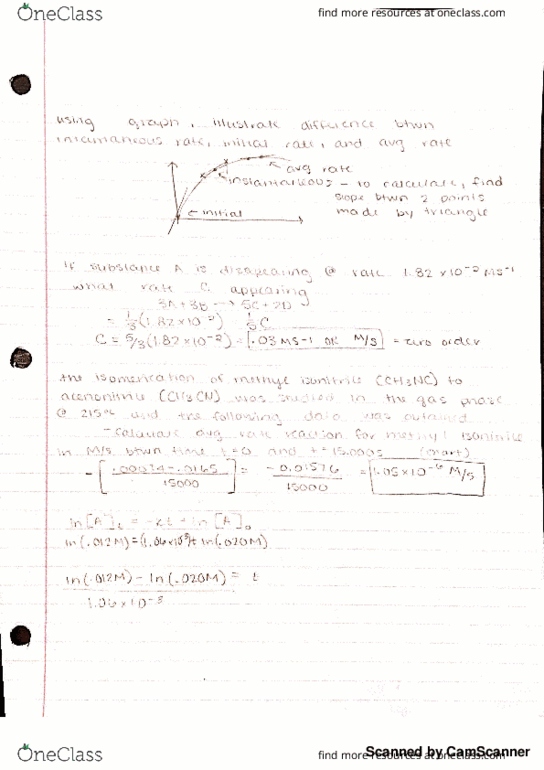 OneClass
find more resources at oneclass.com
using graph, illustrate difference btwn
rate, initial rate, and avg rate
avg rate
instantaneous - to calculate, find
slope btwn 2 points
made by triangle
initial
If substance A is disapearing @ rate 1.82 x10⁻² MS⁻¹
what rate C appearing
3A+3B → 5C+2D
= 1/3(1.82×10⁻²) 1/5C
C = 5/3(1.82×10⁻²) = .03 MS⁻¹ OR M/S = zero order
the isomerication of methyl isonitrile (CH3NC) to
(CH3CN) was studied in the gas phase
@ 215°C and the following data was obtained
- calculate avg rate reaction for methyl isonitrile
in M/S btwn time t=0 and t=15,000s (chart)
- [ - .0165 / 15000 ] = -0.01576 / 15000 = M/S
ln[A]t = -kt + ln[A]0
ln(.012M) = + ln(.020M)
ln(.012M) - ln(.020M) = t
1.06×10⁻³
OneClass
find more resources at oneclass.com
Scanned by CamScanner